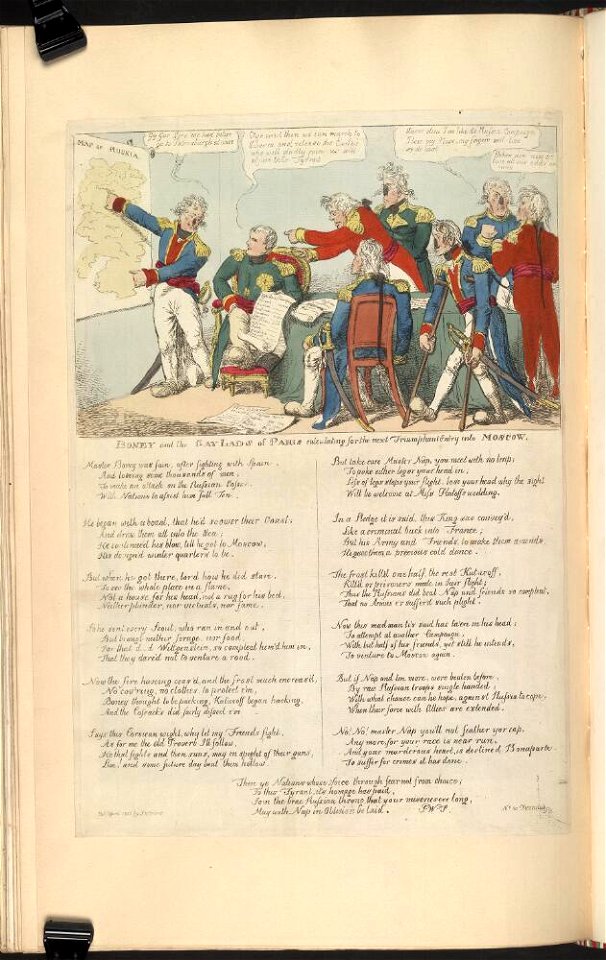 MAP OF RUSSIA
By Gar Sire we had better
go to Petersburgh at once
Our next then we can march to
Siberia and release the Exiles
who will gladly join us and
Never
Dem my Nose, my fingers and
Toes
BONEY and the GAY LADS of PARIS calculating for the next Triumphant Entry into MOSCOW.
Master Boney was fain, after fighting with Spain.
And loosing some thousands of men,
To make an attack on the Russian
With Nations against him full Ten.
He began with a boast, that he'd scower their Coast.
And drive them all into the Sea;
He continued his blow, till he got to Moscow,
His design'd winter quarters to be.
But when he got there, lord how he did stare.
To see the whole place in a flame,
Not a house for his head, not a rug for his bed,
Neither plunder, nor victuals, nor fame.
He sent every Scout, who ran in and out,
But brought neither forage nor food.
For that d..d Witgenstein, so compleat hem'd him in,
That they dared not to venture a road.
Now the fire having ceas'd, and the frost much increas'd,
No cov'ring, no clothes to protect 'em,
Boney thought to be packing, Kutusoff began hacking,
And the Cossacks did fairly dissect 'em
Says this Corsican wight, why let my Friends fight,
As for me the old Proverb I'll follow,
He that fights and then runs, may in spight of their guns,
Live, and some future day beat them hollow.
But take care Master Nap, you meet with no trap,
To make either leg or your head in,
Lest if legs stops your flight, lose your head why the sight
Will be welcome at Miss Platoffs wedding.
In a Sledge it is said, this King was convey'd,
Like a criminal back into France;
But his Army and Friends, to make them amends,
He gave them a precious cold dance.
The frost kill'd one half, the rest Kutusoff,
Kill'd or prisoners made in their flight;
Thus the Russians did beat Nap and friends so compleat,
That no Armies e'er suffer'd such plight.
Now this mad man 'tis said has taken in his head;
To attempt at another Campaign;
With but half of his friends, yet still he intends,
To venture to Moscow again.
But if Nap and ten more, were beaten before,
By raw Russian troops single handed,
With what chance can he hope, against Russia to cope,
When their force with Allies are extended.
No! No! master Nap you'll not feather yor cap,
Any more, for your race is near run,
And your murderous heart, is destined Bonaparte
To suffer for crimes it has done.
Then ye Nations whose force through fear not from choice,
To this Tyrant, its homage has paid,
Join the brave Russian throng that your miseries ere long,
May with Nap in Oblivion be laid.